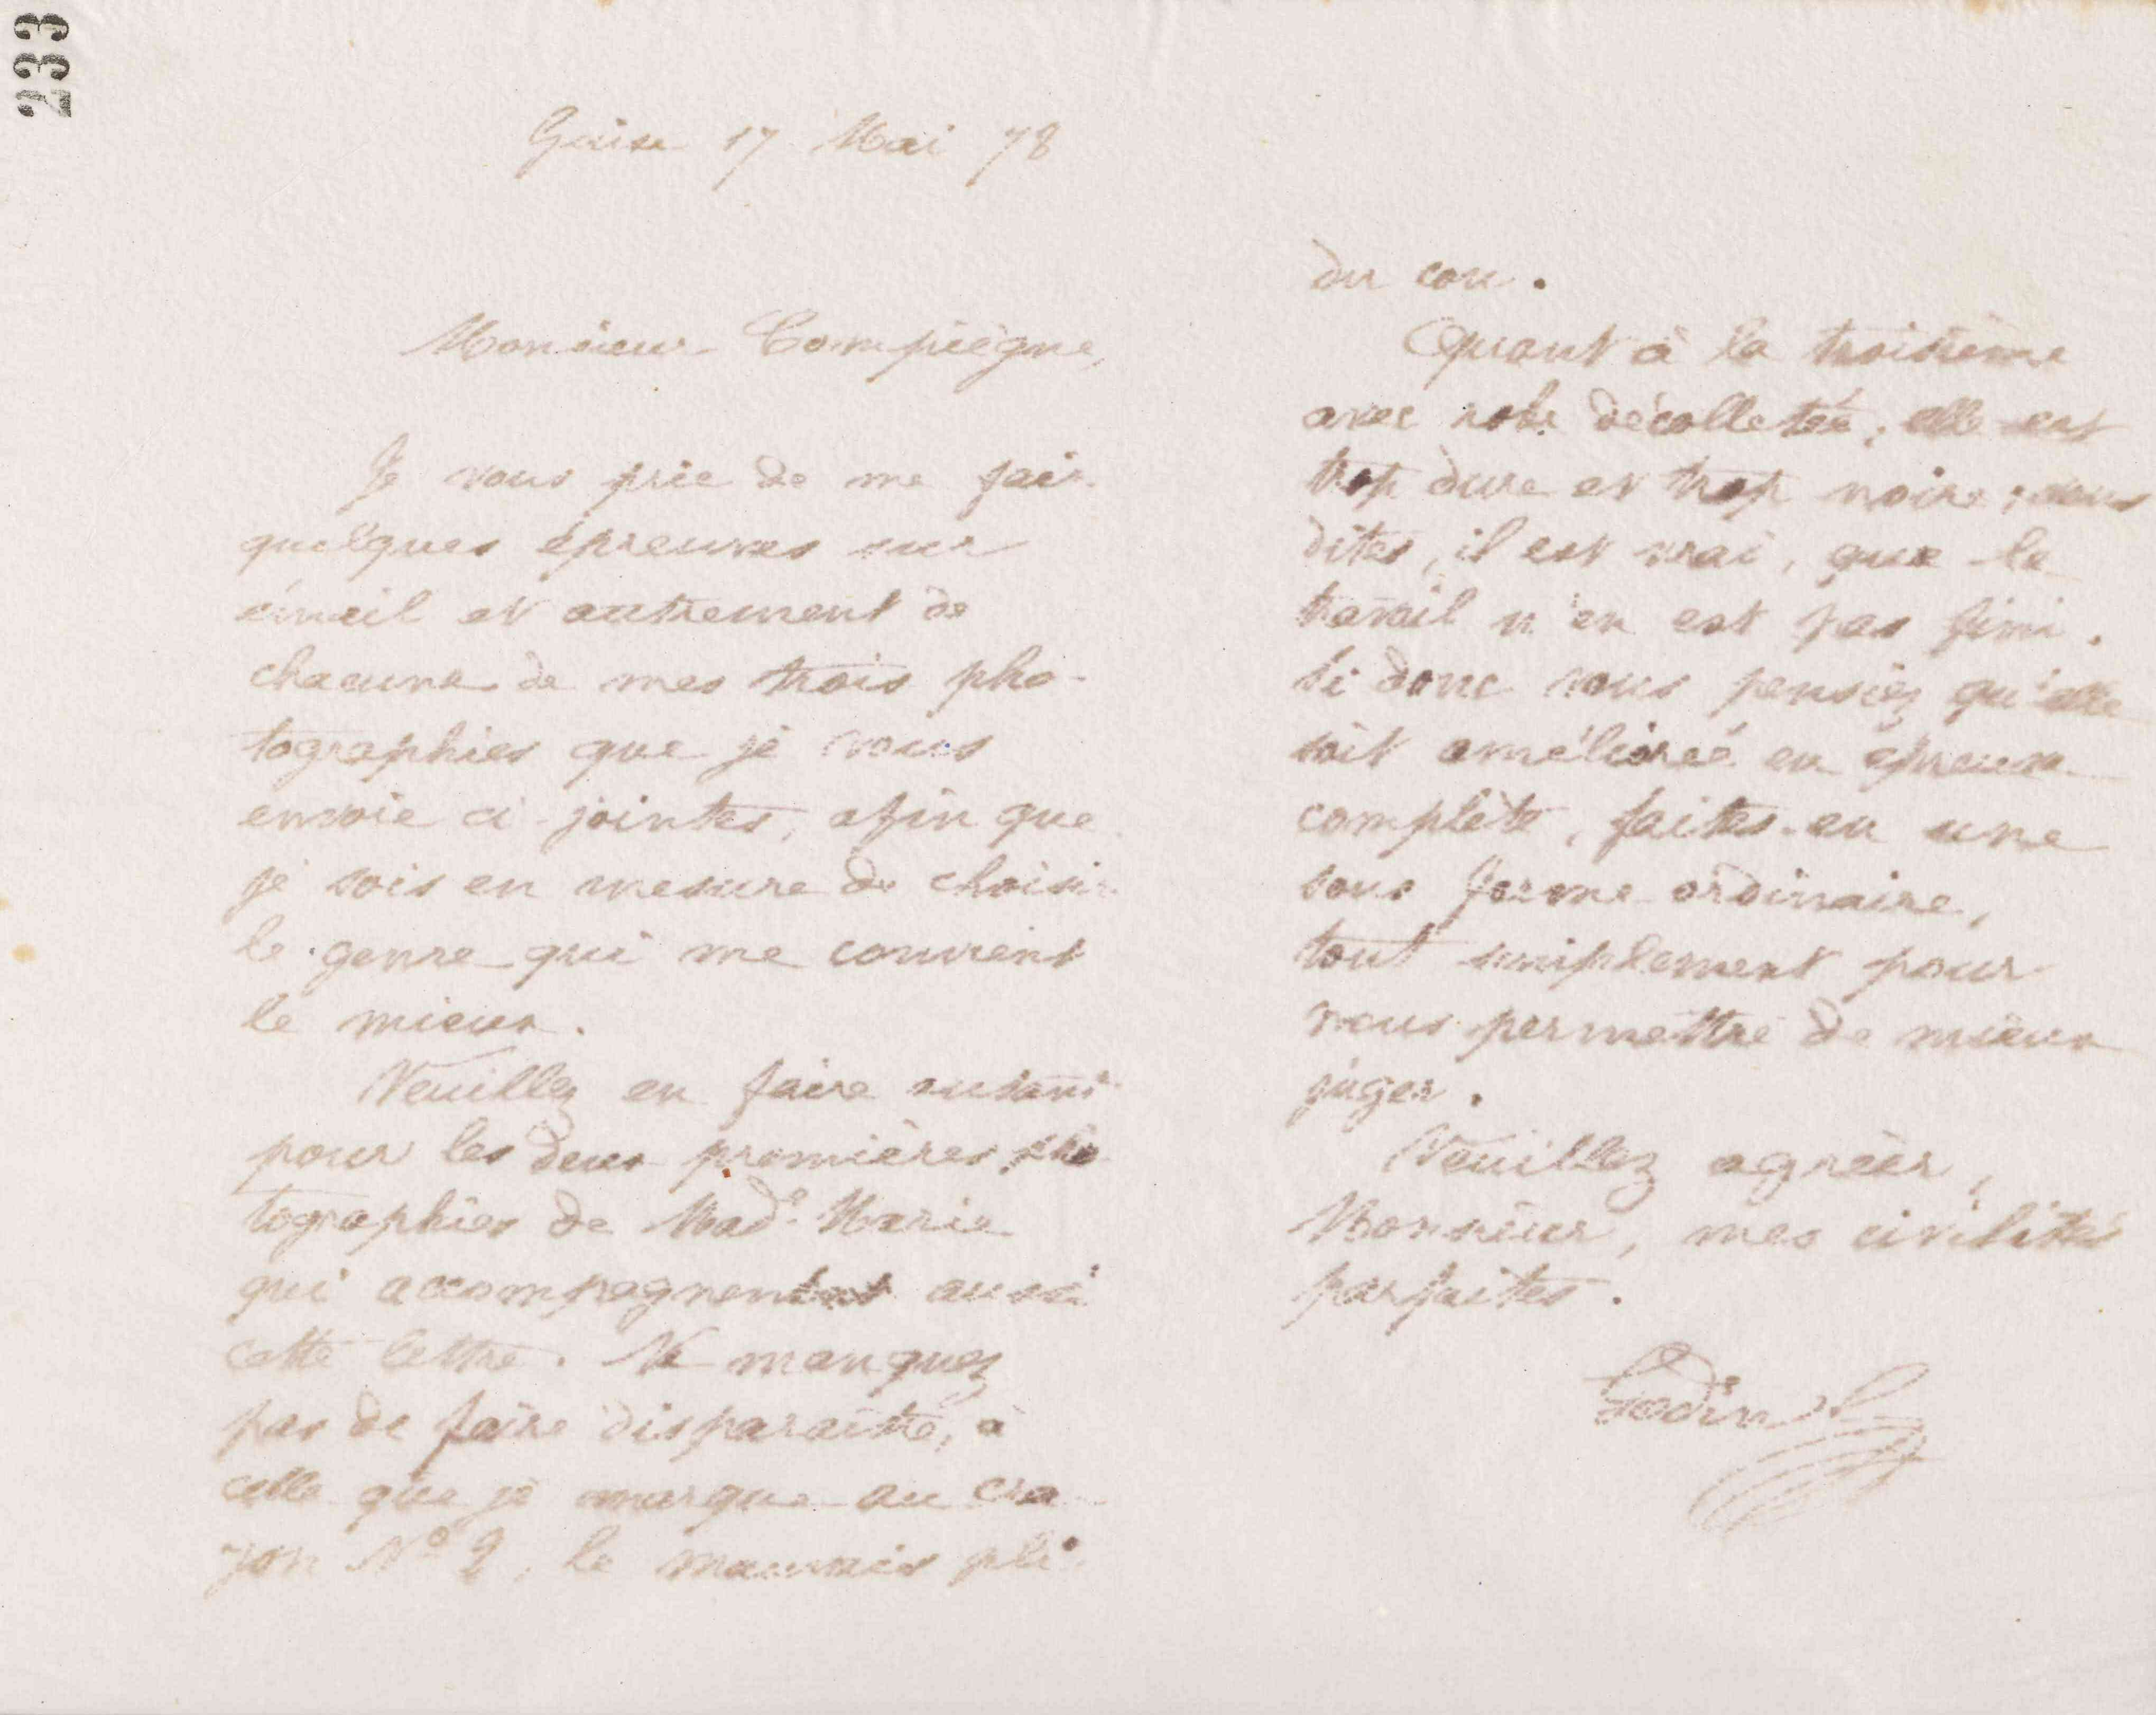 233
Guise 17 Mai 78
Monsieur Compiègne,
Je vous prie de me faire
quelques épreuves sur
émail et autrement de
chacune de mes trois pho-
tographies que je vous
envoie ci-jointes, afin que
je sois en mesure de choisir
le genre qui me convient
le mieux.
Veuillez en faire autant
pour les deux premières pho
tographies de Made Marie
qui accompagnent aussi
cette lettre. Ne manquez
pas de faire disparaître, à
celle que je marque au cra-
yon No 2, le mauvais pli
du cou.
Quant à la troisième
avec robe décolletée, elle est
trop dure et trop noire; vous
dites, il est vrai, que le
travail n'en est pas fini.
Si donc vous pensiez qu'elle
soit améliorée en épreuve
complète, faites-en une
sous forme ordinaire,
tout simplement pour
nous permettre de mieux
juger.
Veuillez agréer,
Monsieur, mes civilités
parfaites.
Godin